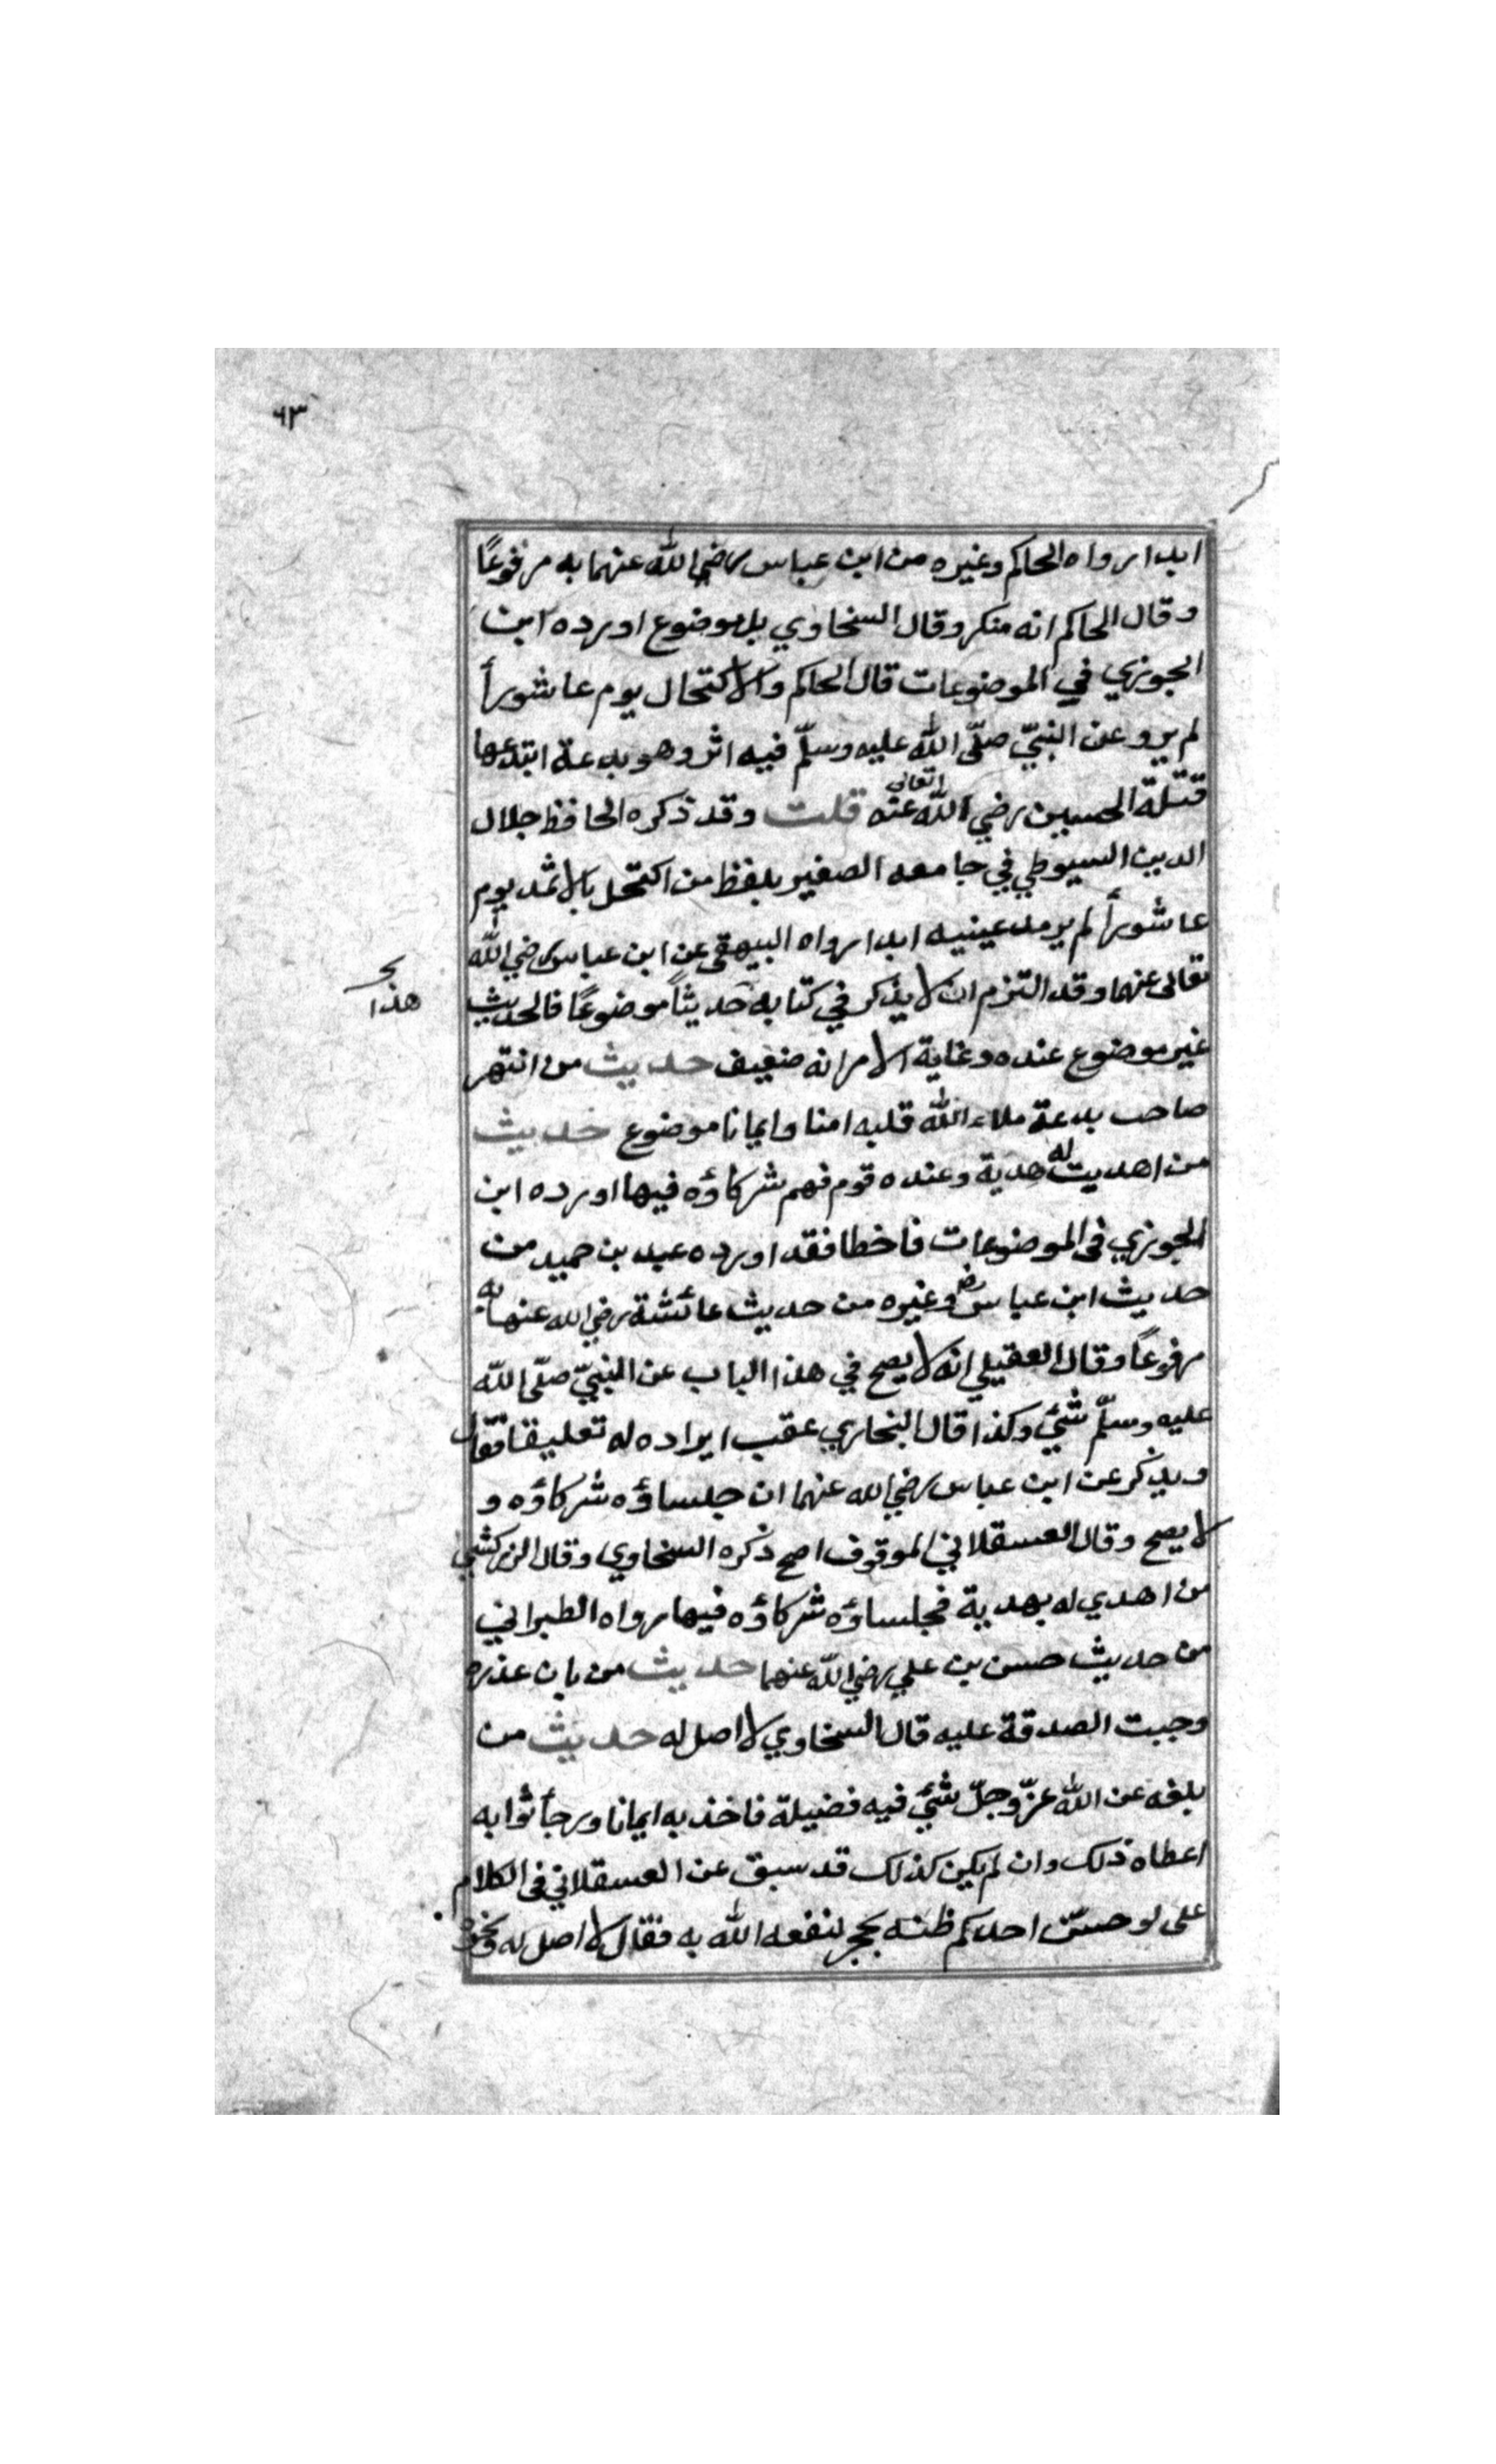 ٦٣
ابدا رواه الحاكم وغيره من ابن عباس رضي الله عنهما به مرفوعًا
وقال الحاكم انه منكر وقال السخاوي بل موضوع اورده ابن
الجوزي في الموضوعات قال الحاكم والاكتحال يوم عاشورأ
لم يرو عن النبيّ صلّى الله عليه وسلّم فيه اثر وهو بدعة ابتدعها
قتلة الحسين رضي الله تعالى عنه قلت وقد ذكره الحافظ جلال
الدين السيوطي في جامعه الصغير بلفظ من اكتحل بالاثمد يوم
عاشورأ لم يرمد عينيه ابدا رواه البيهقي عن ابن عباس رضي الله
تعالى عنهما وقد التزم ان لا يذكر في كتابه حديثاً موضوعًا فالحديث
هذا
غير موضوع عنده وغاية الامر انه ضعيف حديث من انتهر
صاحب بدعة ملاء الله قلبه امنا وايمانا موضوع حديث
من اهديت له هدية وعنده قوم فهم شركاؤه فيها اورده ابن
الجوزي في الموضوعات فاخطا فقد اورده عبد بن حميد من
حديث ابن عباس رض وغيره من حديث عائشة رضي الله عنها به
مرفوعًا وقال العقيلي انه لا يصح في هذا الباب عن النبيّ صلّى الله
عليه وسلّم شئ وكذا قال البخاري عقب ايراده له تعليقا فقال
ويذكر عن ابن عباس رضي الله عنهما ان جلساؤه شركاؤه و
لا يصح وقال العسقلاني الموقوف اصح ذكره السخاوي وقال الزركشي
من اهدي له بهدية فجلساؤه شركاؤه فيها رواه الطبراني
من حديث حسن بن علي رضي الله عنهما حديث من بان عذره
وجبت الصدقة عليه قال السخاوي لا اصل له حديث من
بلغه عن الله عزّ وجلّ شئ فيه فضيلة فاخذ به ايمانا ورجأ ثوابه
اعطاه ذلك وان لم يكن كذلك قد سبق عن العسقلاني في الكلام
على لو حسّن احدكم ظنه بحجر لنفعه الله به فقال لا اصل له ونحوه